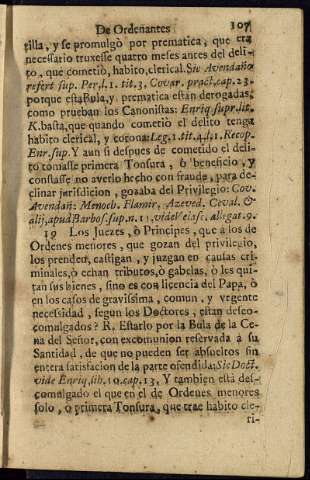 De Ordenantes 107
tilla, y se promulgò por prematica, que era
necessario truxesse quatro meses antes del deli-
to, que cometiò, habito, clerical. Sic Avendaño
refert sup. Per. l. 1. tit. 3, Covar. pract. cap. 23.
porque esta Bula, y prematica estàn derogadas,
como prueban los Canonistas: Enriq supr. lit.
K. basta, que quando cometiò el delito tenga
habito clerical, y corona: Leg. 1. tit. 4. l. 1. Recop.
Enr. sup. Y aun si despues de cometido el deli-
to tomasse primera Tonsura, ò beneficio, y
constasse no averlo hecho con fraude, para de-
clinar jurisdicion, gozaba del Privilegio: Cov.
Avendañ: Menoch. Flamir, Azeved. Ceval. &
alij, apud Barbos. sup. n. 11, vide Velasc. allegat. 9.
19 Los Juezes, ò Principes, que à los de
Ordenes menores, que gozan del privilegio,
los prenden, castigan, y juzgan en causas cri-
minales, ò echan tributos, ò gabelas, ò les qui-
tan sus bienes, sino es con licencia del Papa, ò
en los casos de gravissima, comun, y vrgente
necessidad, segun los Doctores, estàn desco-
comulgados? R. Estarlo por la Bula de la Ce-
na del Señor, con excomunion reservada à su
Santidad, de que no pueden ser absueltos sin
entera satisfacion de la parte ofendida: Sic Doct.
vide Enriq. lib. 10. cap. 13, Y tambien està des-
comulgado el que en el de Ordenes menores
solo, o primera Tonsura, que trae habito cle-
ri-